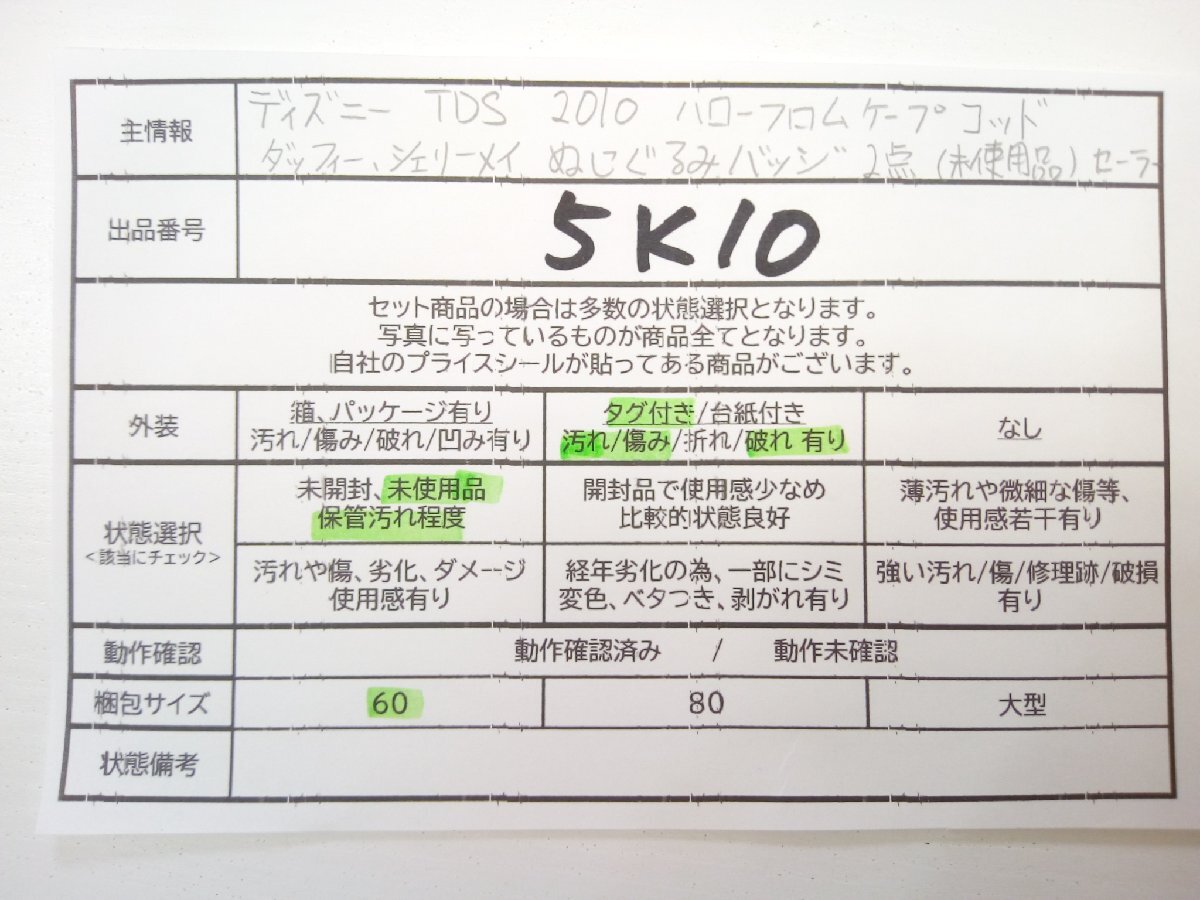 主情報
ディズニー TDS 2010 ハローフロムケープコッド
ダッフィー、シェリーメイ ぬいぐるみバッジ 2点 (未使用品) セーラー
出品番号
5K10
セット商品の場合は多数の状態選択となります。
写真に写っているものが商品全てとなります。
自社のプライスシールが貼ってある商品がございます。
外装
箱、パッケージ有り
汚れ/傷み/破れ/凹み有り
タグ付き/台紙付き
汚れ/傷み/折れ/破れ 有り
なし
状態選択
<該当にチェック>
未開封、未使用品
保管汚れ程度
開封品で使用感少なめ
比較的状態良好
薄汚れや微細な傷等、
使用感若干有り
汚れや傷、劣化、ダメージ
使用感有り
経年劣化の為、一部にシミ
変色、ベタつき、剥がれ有り
強い汚れ/傷/修理跡/破損
有り
動作確認
動作確認済み / 動作未確認
梱包サイズ
60
80
大型
状態備考